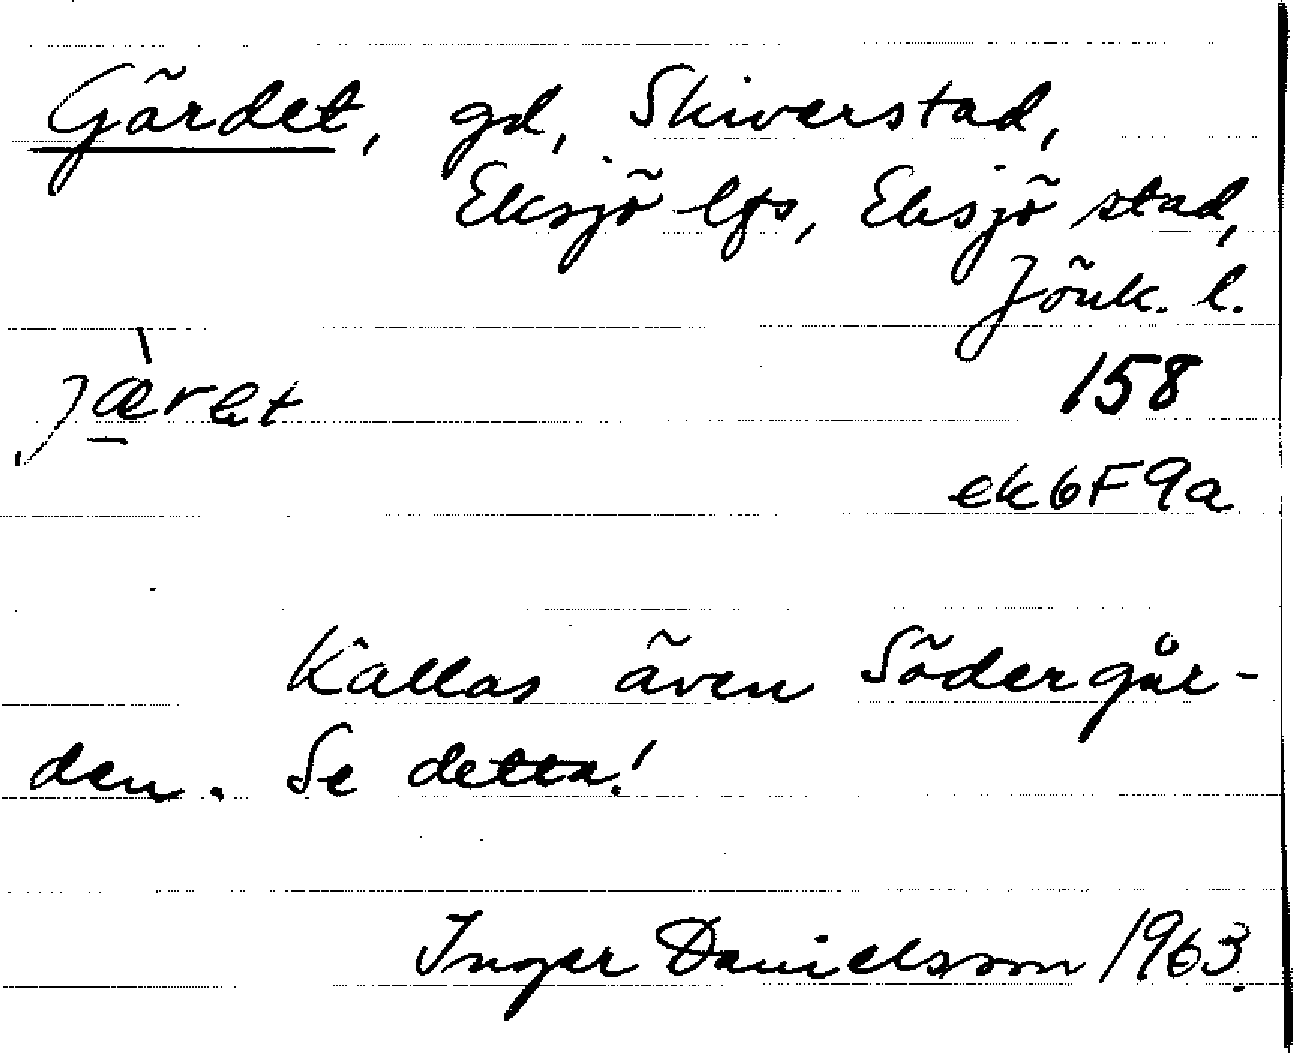 Gärdet, gd, Skiverstad,
Eksjö lfs, Eksjö stad,
Jönk. l.
jæ̠̀ret
158
ek6F9a
Kallas även Södergår-
den. Se detta!
Inger Danielsson 1963.